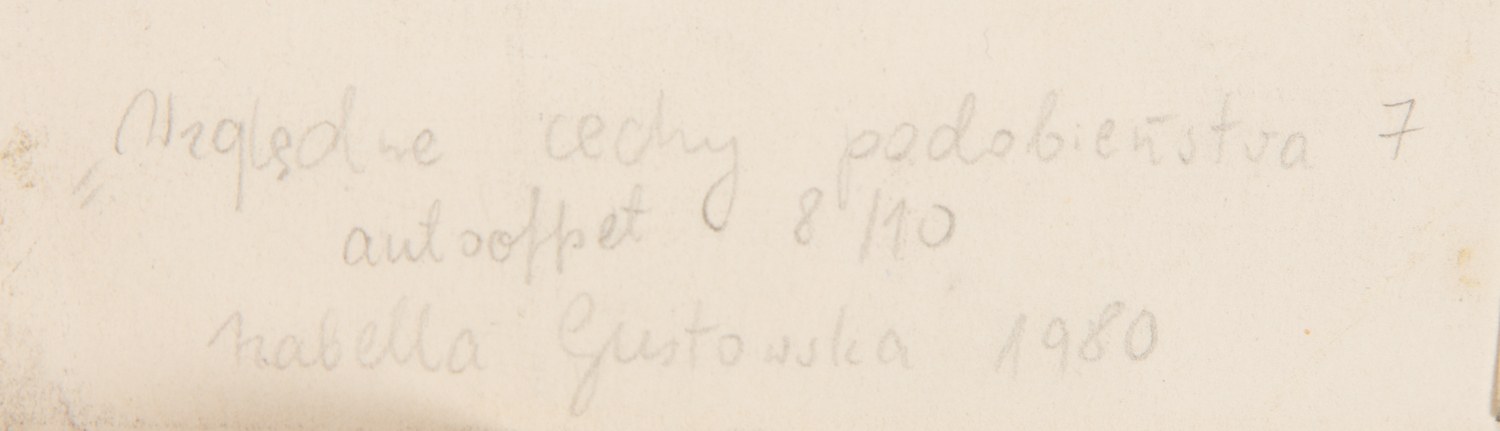 „Względne cechy podobieństwa 7
autooffset 8/10
Izabella Gustowska 1980